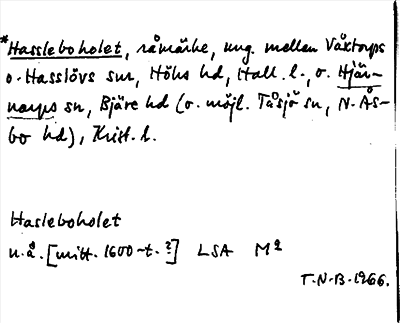 *Hassleboholet, råmärke, ung. mellan Våxtorps
o. Hasslövs snr, Höks hd, Hall. l., o. Hjär-
narps sn, Bjäre hd (o. möjl. Tåsjö sn, N. Ås-
bo hd), Krist. l.
Hasleboholet
u.å. [mitt. 1600-t.?] LSA M2
T.N.B. 1966.